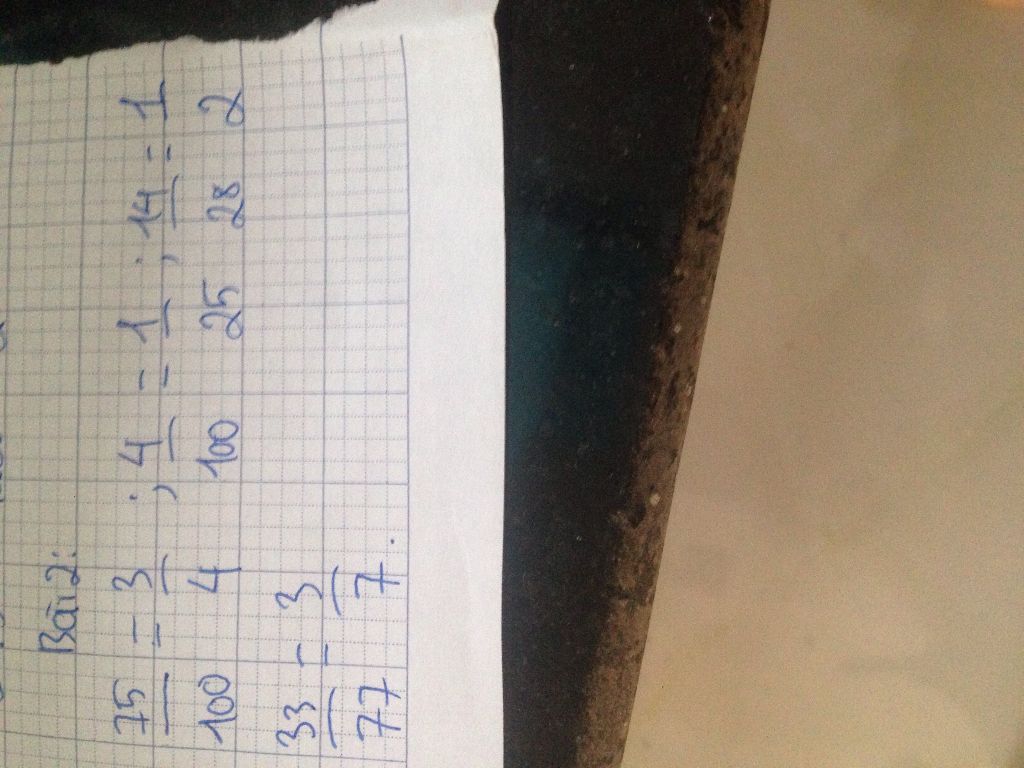 Bài 2:
75/100 = 3/4 ; 4/100 = 1/25 ; 14/28 = 1/2
33/77 = 3/7.